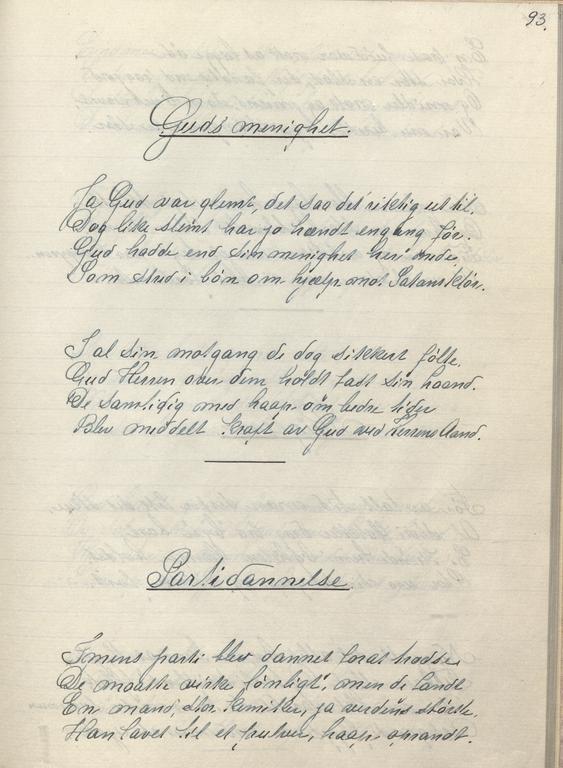 93.
Guds menighet.
Ja Gud var glemt, det saa det riktig ut til.
Dog like slemt har jo hændt engang för.
Gud hadde end sin menighet her
Som stod i bön om hjælp mot Satans klör.
I al sin motgang de dog sikkert fölte,
Gud Herren over dem holdt fast sin haand.
De samtidig med haap om bedre tider
Blev meddelt kraft av Gud ved Herrens Aand.
Partidannelse.
Imens parti blev dannet forat trodse,
De maatte virke lönligt, men de fandt
En mand, stor kemiker, ja verdens störste,
Han lavet til et pulver, haap oprandt.